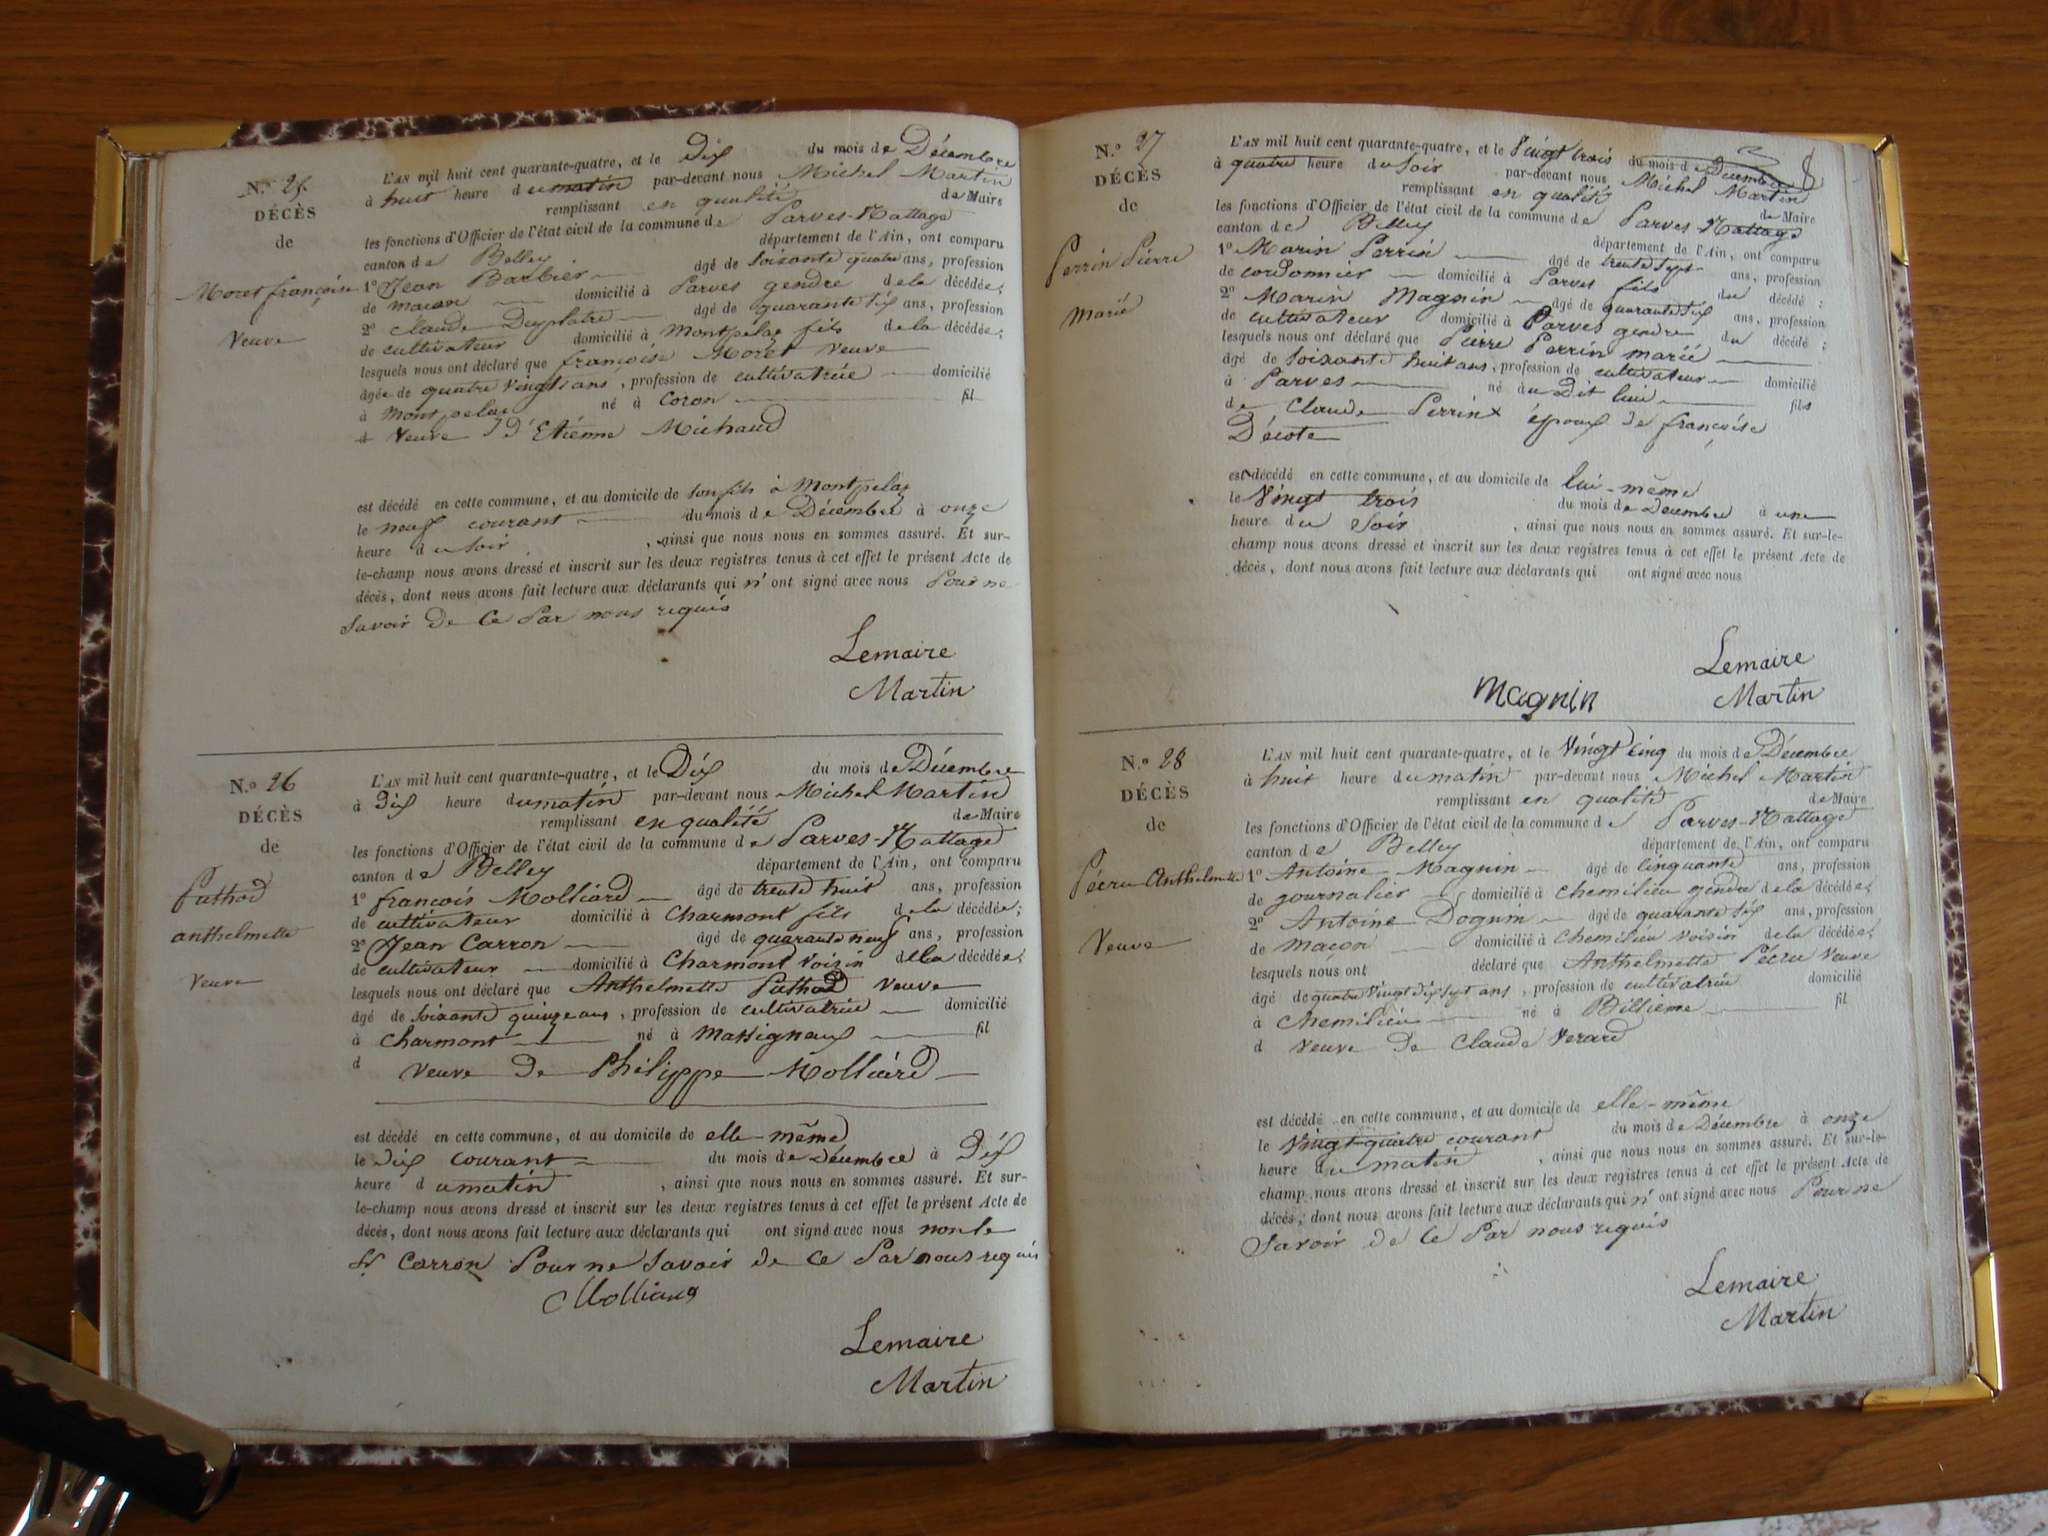 N.o 25
DÉCÈS
de
Moret françoise
Veuve
L'AN mil huit cent quarante-quatre, et le Dix du mois de Décembre
à huit heure du matin par-devant nous Michel Martin
remplissant en qualité de Maire
les fonctions d'Officier de l'état civil de la commune de Parves-Nattage
canton de Belley département de l'Ain, ont comparu
1o Jean Barbier âgé de soixante quatre ans, profession
de maçon domicilié à Parves gendre de la décédée;
2o Claude Duplatre âgé de quarante six ans, profession
de cultivateur domicilié à Montpelas fils de la décédée;
lesquels nous ont déclaré que françoise Moret Veuve
âgée de quatre vingts ans, profession de cultivatrice domicilié
à Montpelas né à Coron fil
d Veuve D'Etienne Michaud
est décédé en cette commune, et au domicile de son fils à Montpelas
le neuf courant du mois de Décembre à onze
heure du soir, ainsi que nous nous en sommes assuré. Et sur-
le-champ nous avons dressé et inscrit sur les deux registres tenus à cet effet le présent Acte de
décès, dont nous avons fait lecture aux déclarants qui n'ont signé avec nous Pour ne
Savoir de Ce Par nous requis
Lemaire
Martin
N.o 26
DÉCÈS
de
Puthod
anthelmette
Veuve
L'AN mil huit cent quarante-quatre, et le Dix du mois de Décembre
à Dix heure du matin par-devant nous Michel Martin
remplissant en qualité de Maire
les fonctions d'Officier de l'état civil de la commune de Parves-Nattage
canton de Belley département de l'Ain, ont comparu
1o françois Molliard âgé de trente huit ans, profession
de cultivateur domicilié à Charmont fils de la décédée;
2o Jean Carron âgé de quarante neuf ans, profession
de cultivateur domicilié à Charmont Voisin de la décédée;
lesquels nous ont déclaré que Anthelmette Puthod Veuve
âgé de soixante quinze ans, profession de cultivatrice domicilié
à Charmont né à Massigneux fil
d Veuve De Philippe Molliard
est décédé en cette commune, et au domicile de elle-même
le Dix courant du mois de Décembre à Dix
heure du matin, ainsi que nous nous en sommes assuré. Et sur-
le-champ nous avons dressé et inscrit sur les deux registres tenus à cet effet le présent Acte de
décès, dont nous avons fait lecture aux déclarants qui ont signé avec nous non le
Sr Carron Pour ne Savoir de Ce Par nous requis
Molliard
Lemaire
Martin
N.o 27
DÉCÈS
de
Perrin Pierre
Marié
L'AN mil huit cent quarante-quatre, et le Vingt trois du mois de Décembre
à quatre heure du Soir par-devant nous Michel Martin
remplissant en qualité de Maire
les fonctions d'Officier de l'état civil de la commune de Parves-Nattage
canton de Belley département de l'Ain, ont comparu
1o Marin Perrin âgé de trente sept ans, profession
de cordonnier domicilié à Parves fils du décédé;
2o Marin Magnin âgé de quarante six ans, profession
de cultivateur domicilié à Parves gendre du décédé;
lesquels nous ont déclaré que Pierre Perrin marié
âgé de soixante huit ans, profession de cultivateur domicilié
à Parves né au Dit lieu
de Claude Perrin époux de françoise fils
Décote
est décédé en cette commune, et au domicile de lui-même
le Vingt trois du mois de Décembre à une
heure du Soir, ainsi que nous nous en sommes assuré. Et sur-le-
champ nous avons dressé et inscrit sur les deux registres tenus à cet effet le présent Acte de
décès, dont nous avons fait lecture aux déclarants qui ont signé avec nous
Magnin
Lemaire
Martin
N.o 28
DÉCÈS
de
Pécru Anthelmette
Veuve
L'AN mil huit cent quarante-quatre, et le Vingt cinq du mois de Décembre
à huit heure du matin par-devant nous Michel Martin
remplissant en qualité de Maire
les fonctions d'Officier de l'état civil de la commune de Parves-Nattage
canton de Belley département de l'Ain, ont comparu
1o Antoine Magnin âgé de cinquante ans, profession
de journalier domicilié à Chemilieu gendre de la décédée;
2o Antoine Dognin âgé de quarante six ans, profession
de maçon domicilié à Chemilieu voisin de la décédée;
lesquels nous ont déclaré que Anthelmette Pécru Veuve
âgé de quatre vingt dix sept ans, profession de cultivatrice domicilié
à Chemilieu né à Billieme fil
d Veuve de Claude Verard
est décédé en cette commune, et au domicile de elle-même
le Vingt-quatre courant du mois de Décembre à onze
heure du matin, ainsi que nous nous en sommes assuré. Et sur-le-
champ nous avons dressé et inscrit sur les deux registres tenus à cet effet le présent Acte de
décès, dont nous avons fait lecture aux déclarants qui n'ont signé avec nous Pour ne
Savoir de Ce Par nous requis
Lemaire
Martin